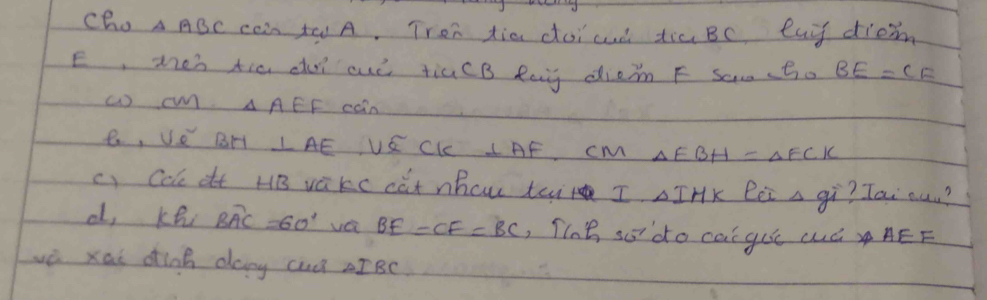 Cho △ ABC cân tại A. Trên tia đối của tia BC lấy điểm
E, trên tia đối của tia CB lấy điểm F sao cho BE = CF
a) CM △ AEF cân
b, Vẽ BH ⊥ AE Vẽ CK ⊥ AF. CM △EBH = △FCK
c, Các đt HB và KC cắt nhau tại I △IHK là △ gì? Tại sao?
d, Khi BÂC = 60° và BE = CF = BC, Tính số đo các góc của △ AEF
và xác định dạng của △IBC